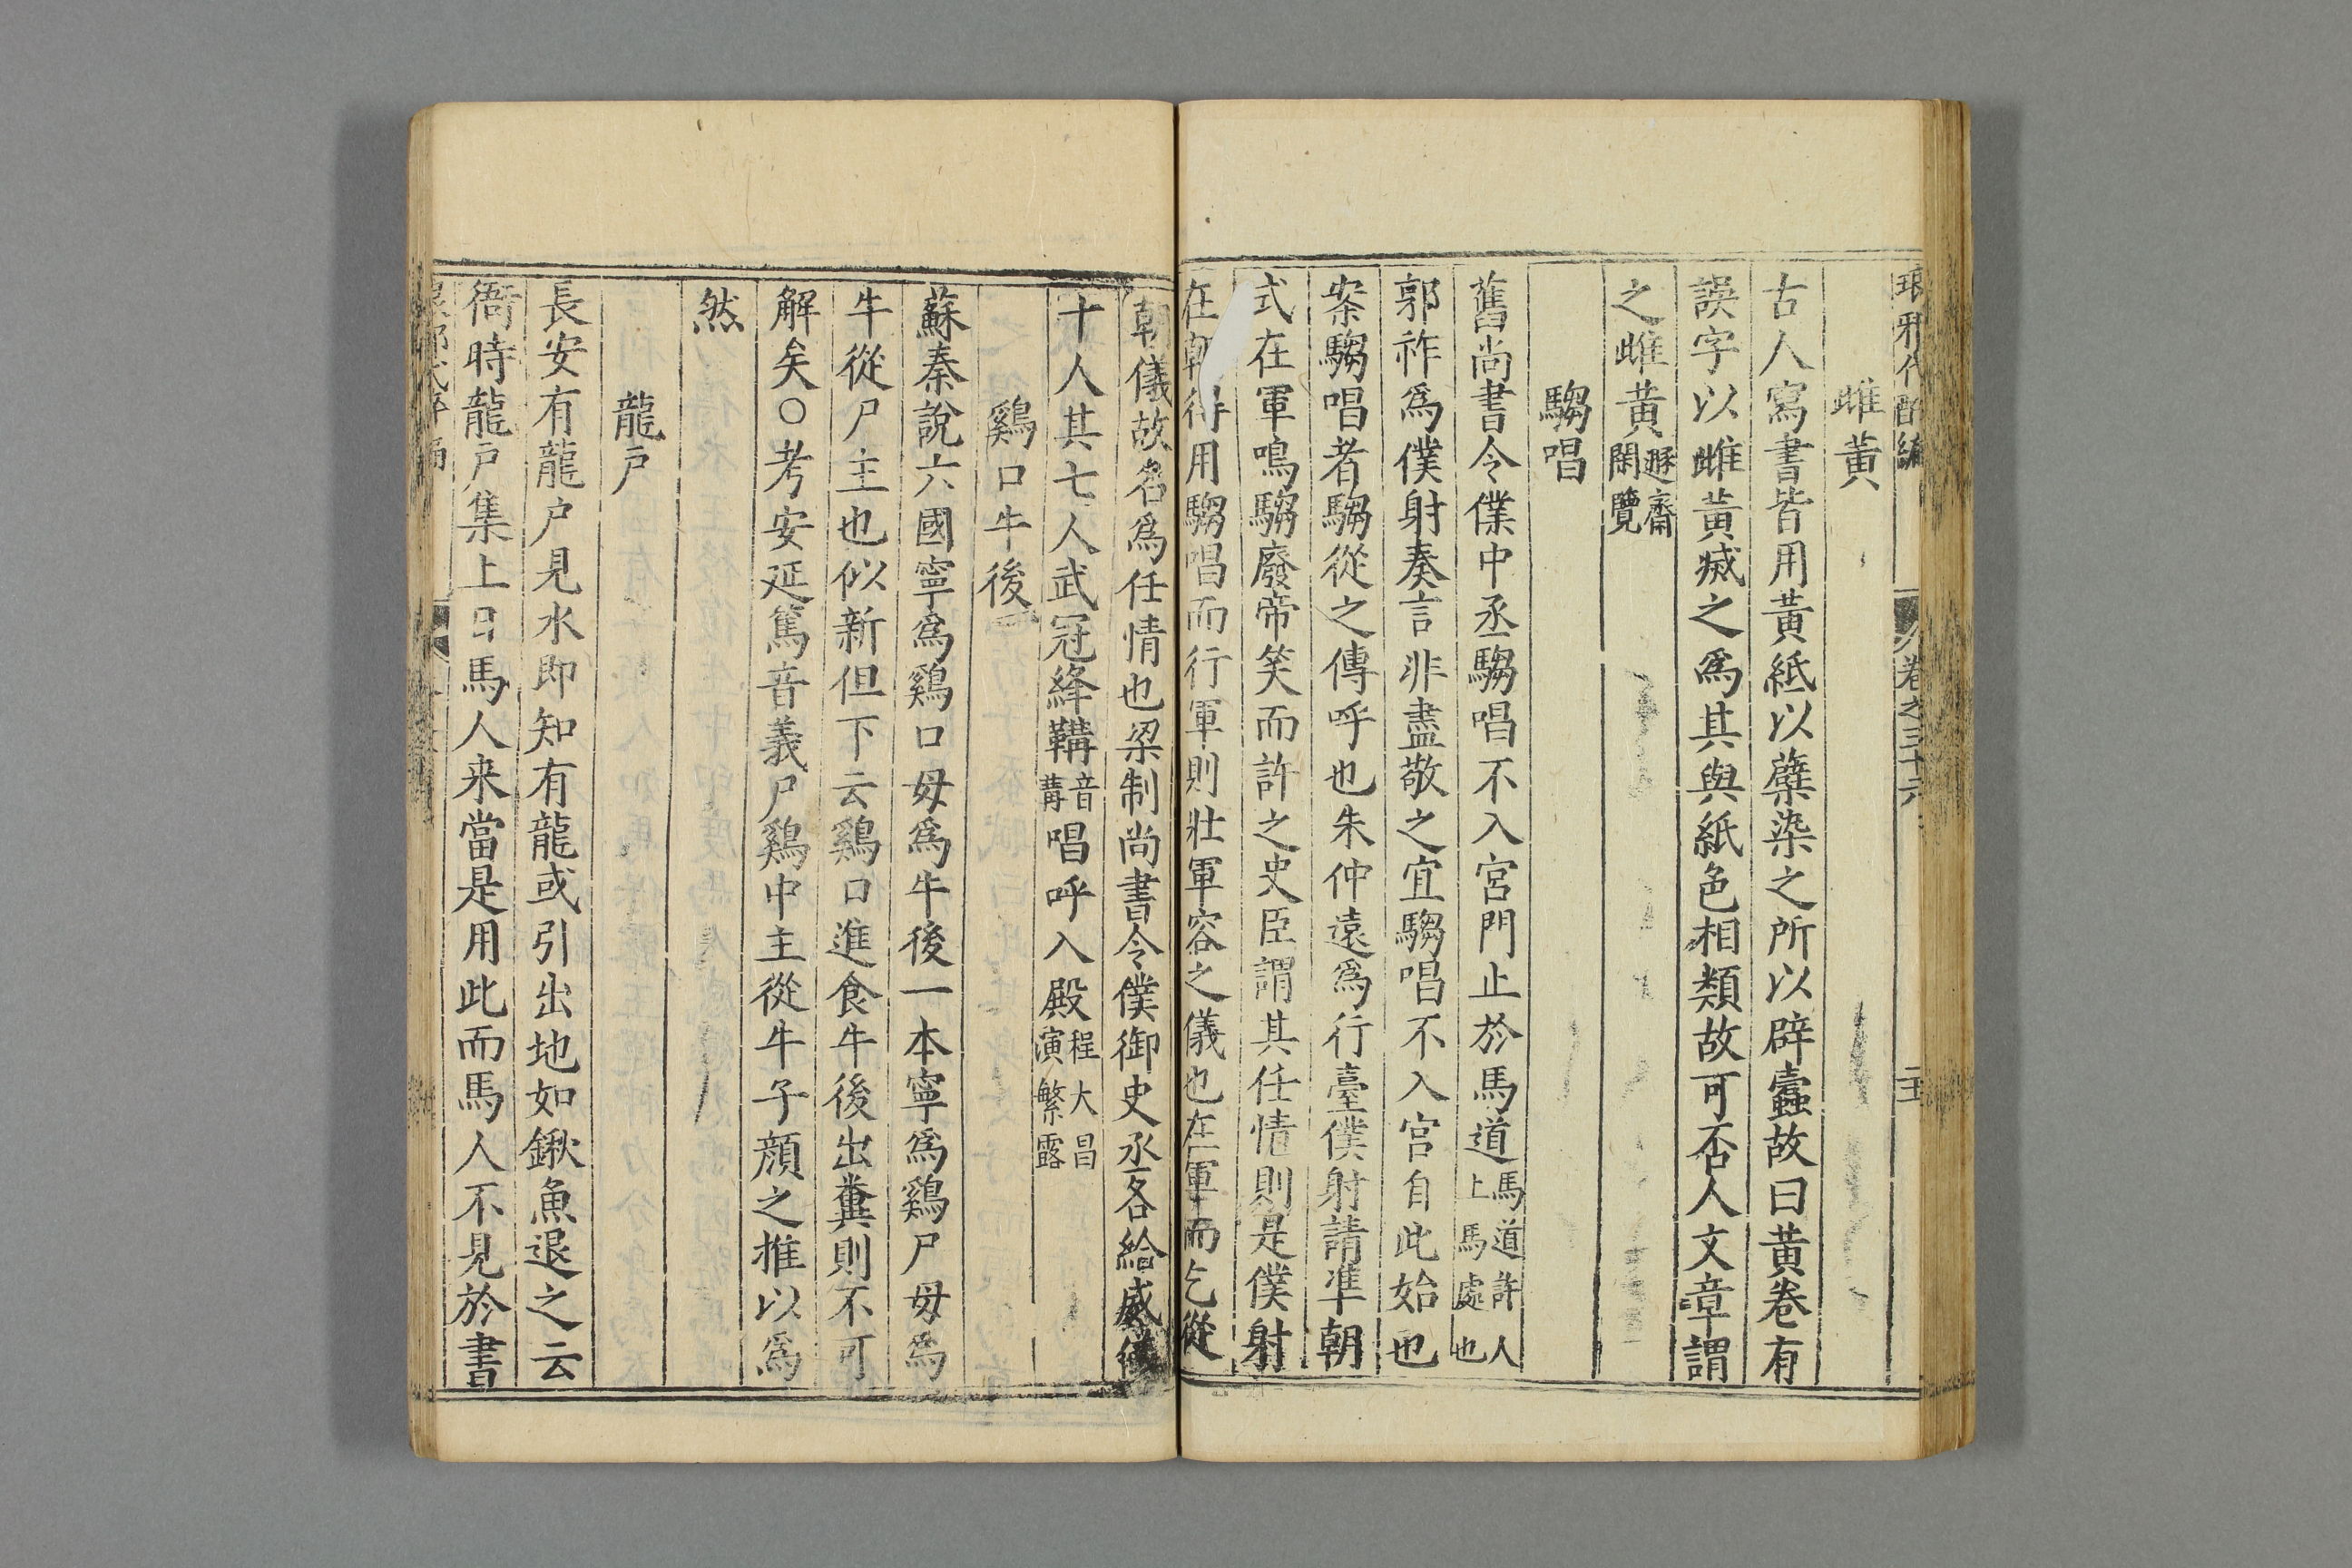 琅邪代醉編 卷之三十六 二十
雌黃
古人寫書皆用黃紙以蘗染之所以辟蠹故曰黃卷有
誤字以雌黃滅之爲其與紙色相類故可否人文章謂
之雌黃遯齋閑覽
騶唱
舊尚書令僕中丞騶唱不入宮門止於馬道馬道許人上馬處也
郭祚爲僕射奏言非盡敬之宜騶唱不入宮自此始也
案騶唱者騶從之傳呼也朱仲遠爲行臺僕射請準朝
式在軍鳴騶廢帝笑而許之史臣謂其任情則是僕射
在朝得用騶唱而行軍則壯軍容之儀也在軍而乞從
朝儀故名爲任情也梁制尚書令僕御史丞各給威儀
十人其七人武冠絳鞲音冓唱呼入殿程大昌演繁露
鷄口牛後
蘇秦說六國寧爲鷄口毋爲牛後一本寧爲鷄尸毋爲
牛從尸主也似新但下云鷄口進食牛後出糞則不可
解矣○考安延篤音義尸鷄中主從牛子顔之推以爲
然
龍户
長安有龍户見水即知有龍或引出地如鰍魚退之云
衙時龍户集上日馬人来當是用此而馬人不見於書